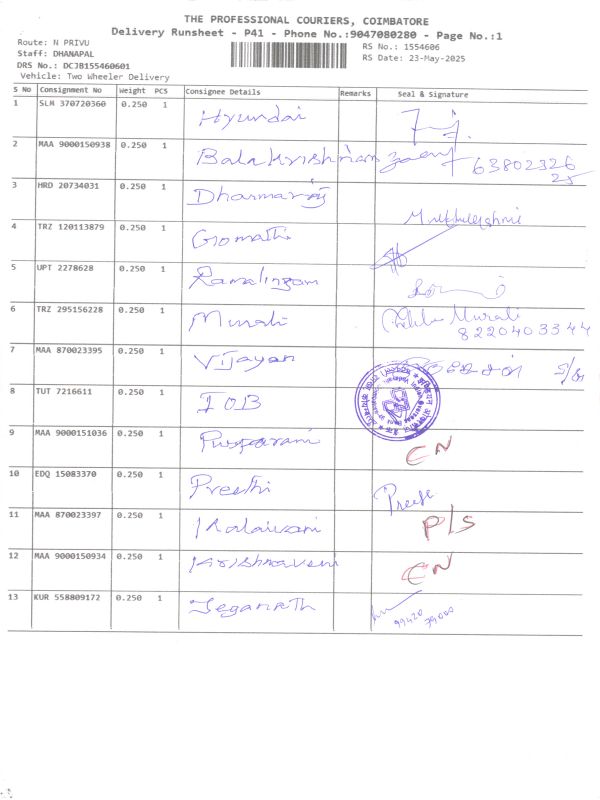 THE PROFESSIONAL COURIERS, COIMBATORE
Delivery Runsheet - P41 - Phone No.:9047080280 - Page No.:1
Route: N PRIVU
RS No.: 1554606
Staff: DHANAPAL
RS Date: 23-May-2025
DRS No.: DCJB155460601
Vehicle: Two Wheeler Delivery
S No Consignment No Weight PCS Consignee Details Remarks Seal & Signature
1 SLM 370720360 0.250 1 Hyundai
2 MAA 9000150938 0.250 1 Balakrishnan 63802326
25
3 HRD 20734031 0.250 1 Dharmaraj
4 TRZ 120113879 0.250 1 Gomathi
5 UPT 2278628 0.250 1 Ramalingam
6 TRZ 295156228 0.250 1 Murali Murali
8220403344
7 MAA 870023395 0.250 1 Vijayan
8 TUT 7216611 0.250 1 IOB
9 MAA 9000151036 0.250 1 CN
10 EDQ 15083370 0.250 1 Preethi
11 MAA 870023397 0.250 1 Kalaivani P/S
12 MAA 9000150934 0.250 1 Krishnaveni CN
13 KUR 558809172 0.250 1 Jeganath 99420
79000